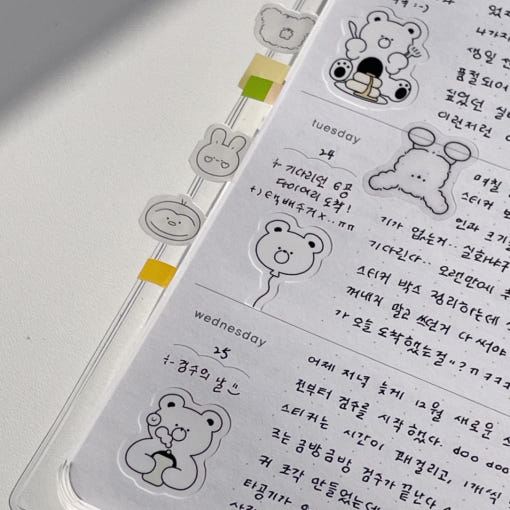 있
나가지
생일
품절되어
싶었던
이런저런
tuesday
24
기다리던 6공
다이어리 도착!
+) 택배수거 x.. ㅠㅠ
며칠
스티커
인과 크기
기가 없는거.. 실화냐구
기다린다.. 오랜만에
스티커 박스 정리하는데
꺼내지 말고 썼던거 다 써야
가 오늘 도착했는걸..? ㅠ ㅋㅋㅋ
wednesday
25
÷ 검수의 날
어제 저녁 늦게 12월 새로운
전부터 검수를 시작했다. doo doo
스티커는 시간이 꽤 걸리고, 1개씩
조는 금방금방 검수가 끝난다
커 조각 만들었는데
타공기가